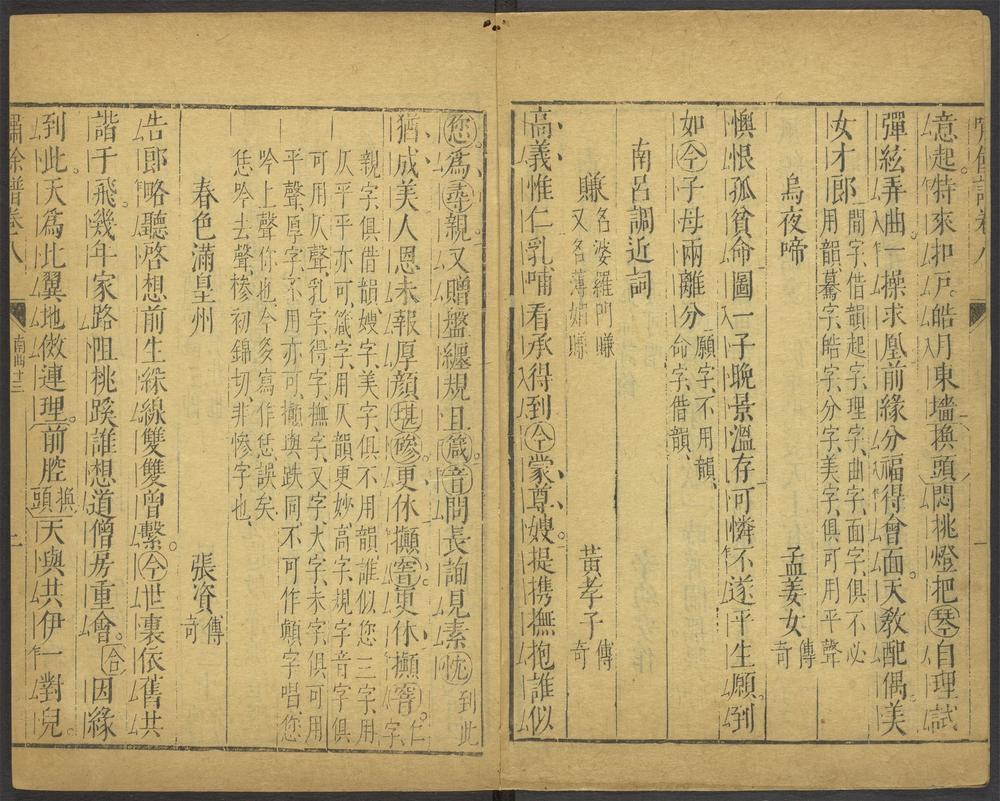 意起特來扣戶皓月東墻換頭悶挑燈把琴自理試
彈絃弄曲一操求凰前緣分福得會面天教配偶美
女才郎
間字借韻起字理字曲字面字俱不必
用韻驀字皓字分字美字俱可用平聲
烏夜啼
孟姜女
傳奇
懊恨孤貧命圖一子晚景溫存可憐不遂平生願到
如今子母兩離分
願字不用韻
命字借韻
南呂調近詞
賺
名婆羅門賺
又名薄媚賺
黃孝子
傳奇
高義惟仁乳哺看承得到今蒙尊嫂提携撫抱誰似
您為尋親又贈盤纏規且箴音問長詢見素忱到此
猶成美人恩未報厚顏堪磣更休攧窨更休攧窨仁字
親字俱借韻嫂字美字俱不用韻誰似您三字用
仄平平亦可箴字用仄韻更妙高字規字音字俱
可用仄聲乳字得字撫字又字大字未字俱可用
平聲厚字不用亦可攧與跌同不可作顛字唱您
吟上聲你也今多寫作恁誤矣
恁吟去聲磣初錦切非慘字也
春色滿皇州
張資
傳奇
告郎略聽啓想前生綵線雙雙曾繫今世裏依舊共
諧于飛幾年家路阻桃蹊誰想道僧房重會合因緣
到此天為比翼地做連理前腔換頭天與共伊一對兒
譜卷八
南曲十三
二